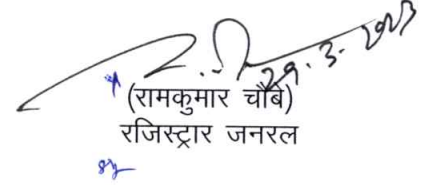 29.3.2023
(रामकुमार चौबे)
रजिस्ट्रार जनरल